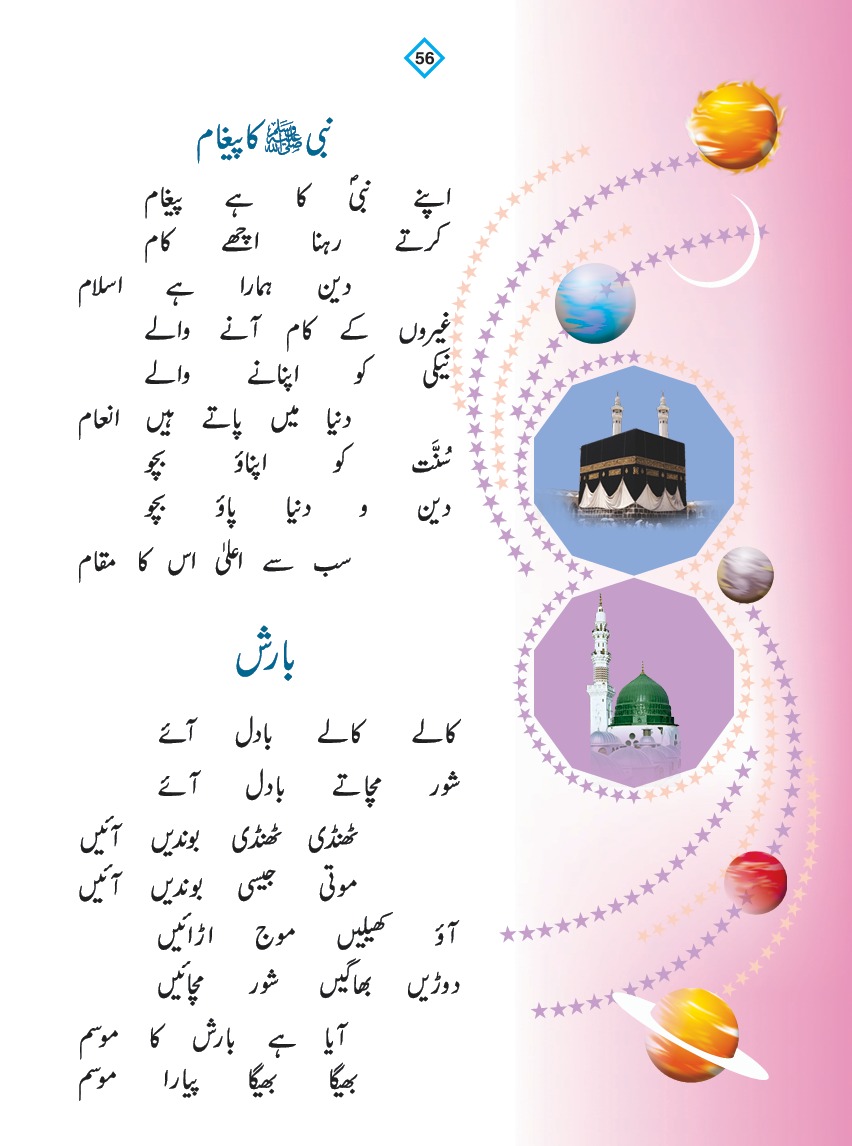 56
نبی ﷺ کا پیغام
اپنے نبیؐ کا ہے پیغام
کرتے رہنا اچھے کام
دین ہمارا ہے اسلام
غیروں کے کام آنے والے
نیکی کو اپنانے والے
دنیا میں پاتے ہیں انعام
سُنَّت کو اپناؤ بچو
دین و دنیا پاؤ بچو
سب سے اعلیٰ اس کا مقام
بارش
کالے کالے بادل آئے
شور مچاتے بادل آئے
ٹھنڈی ٹھنڈی بوندیں آئیں
موتی جیسی بوندیں آئیں
آؤ کھیلیں موج اڑائیں
دوڑیں بھاگیں شور مچائیں
آیا ہے بارش کا موسم
بھیگا بھیگا پیارا موسم